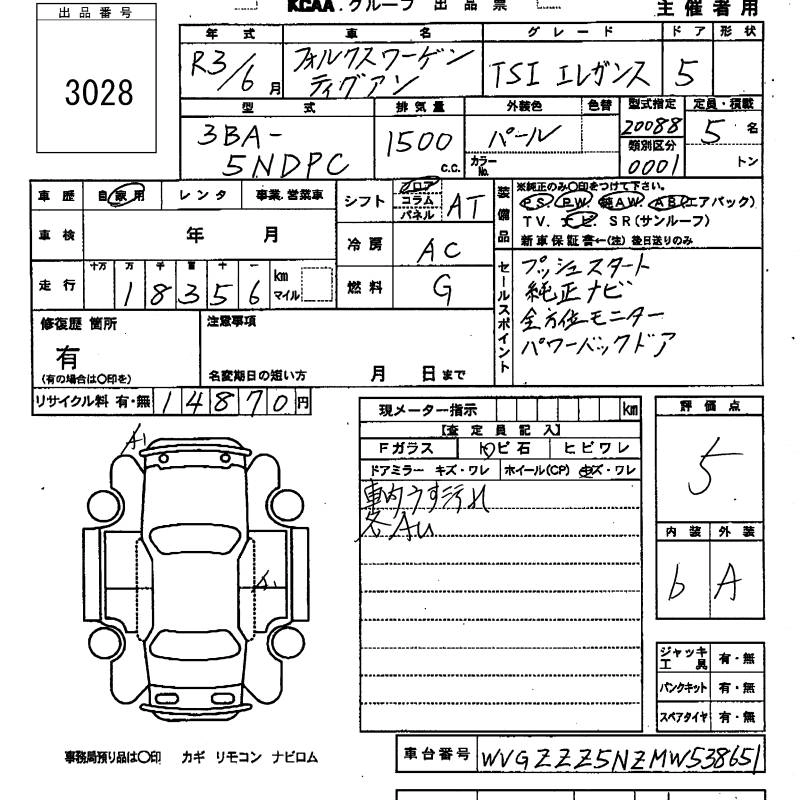 KCAA.グループ 出品票
主催者用
出品番号
3028
年式 車名 グレード ドア 形状
R3/6月 フォルクスワーゲン ティグアン TSI エレガンス 5
型式 排気量 外装色 色替 型式指定 定員・積載
3BA-5NDPC 1500 c.c. パール カラーNo. 20088 5名
類別区分
0001 トン
車歴 自家用 レンタ 事業.営業車
シフト フロア コラム パネル AT
装備品 ※純正のみ○印をつけて下さい。
PS PW 純AW AB(エアバック)
TV. ナビ. SR(サンルーフ)
新車保証書←(注)後日送りのみ
車検 年 月
冷房 AC
走行 十万 万 千 百 十 一 km マイル
18356
燃料 G
セールスポイント
プッシュスタート
純正ナビ
全方位モニター
パワーバックドア
修復歴 箇所
有
(有の場合は○印を)
注意事項
名変期日の短い方 月 日まで
リサイクル料 有・無 14870円
現メーター指示 km
【査定員記入】
Fガラス トビ石 ヒビワレ
ドアミラー キズ・ワレ ホイール(CP) キズ・ワレ
車内うす汚れ
各AU
評価点
5
内装 外装
b A
A1
A1
ジャッキ工具 有・無
パンクキット 有・無
スペアタイヤ 有・無
事務局預り品は○印 カギ リモコン ナビロム
車台番号 WVGZZZ5NZMW538651